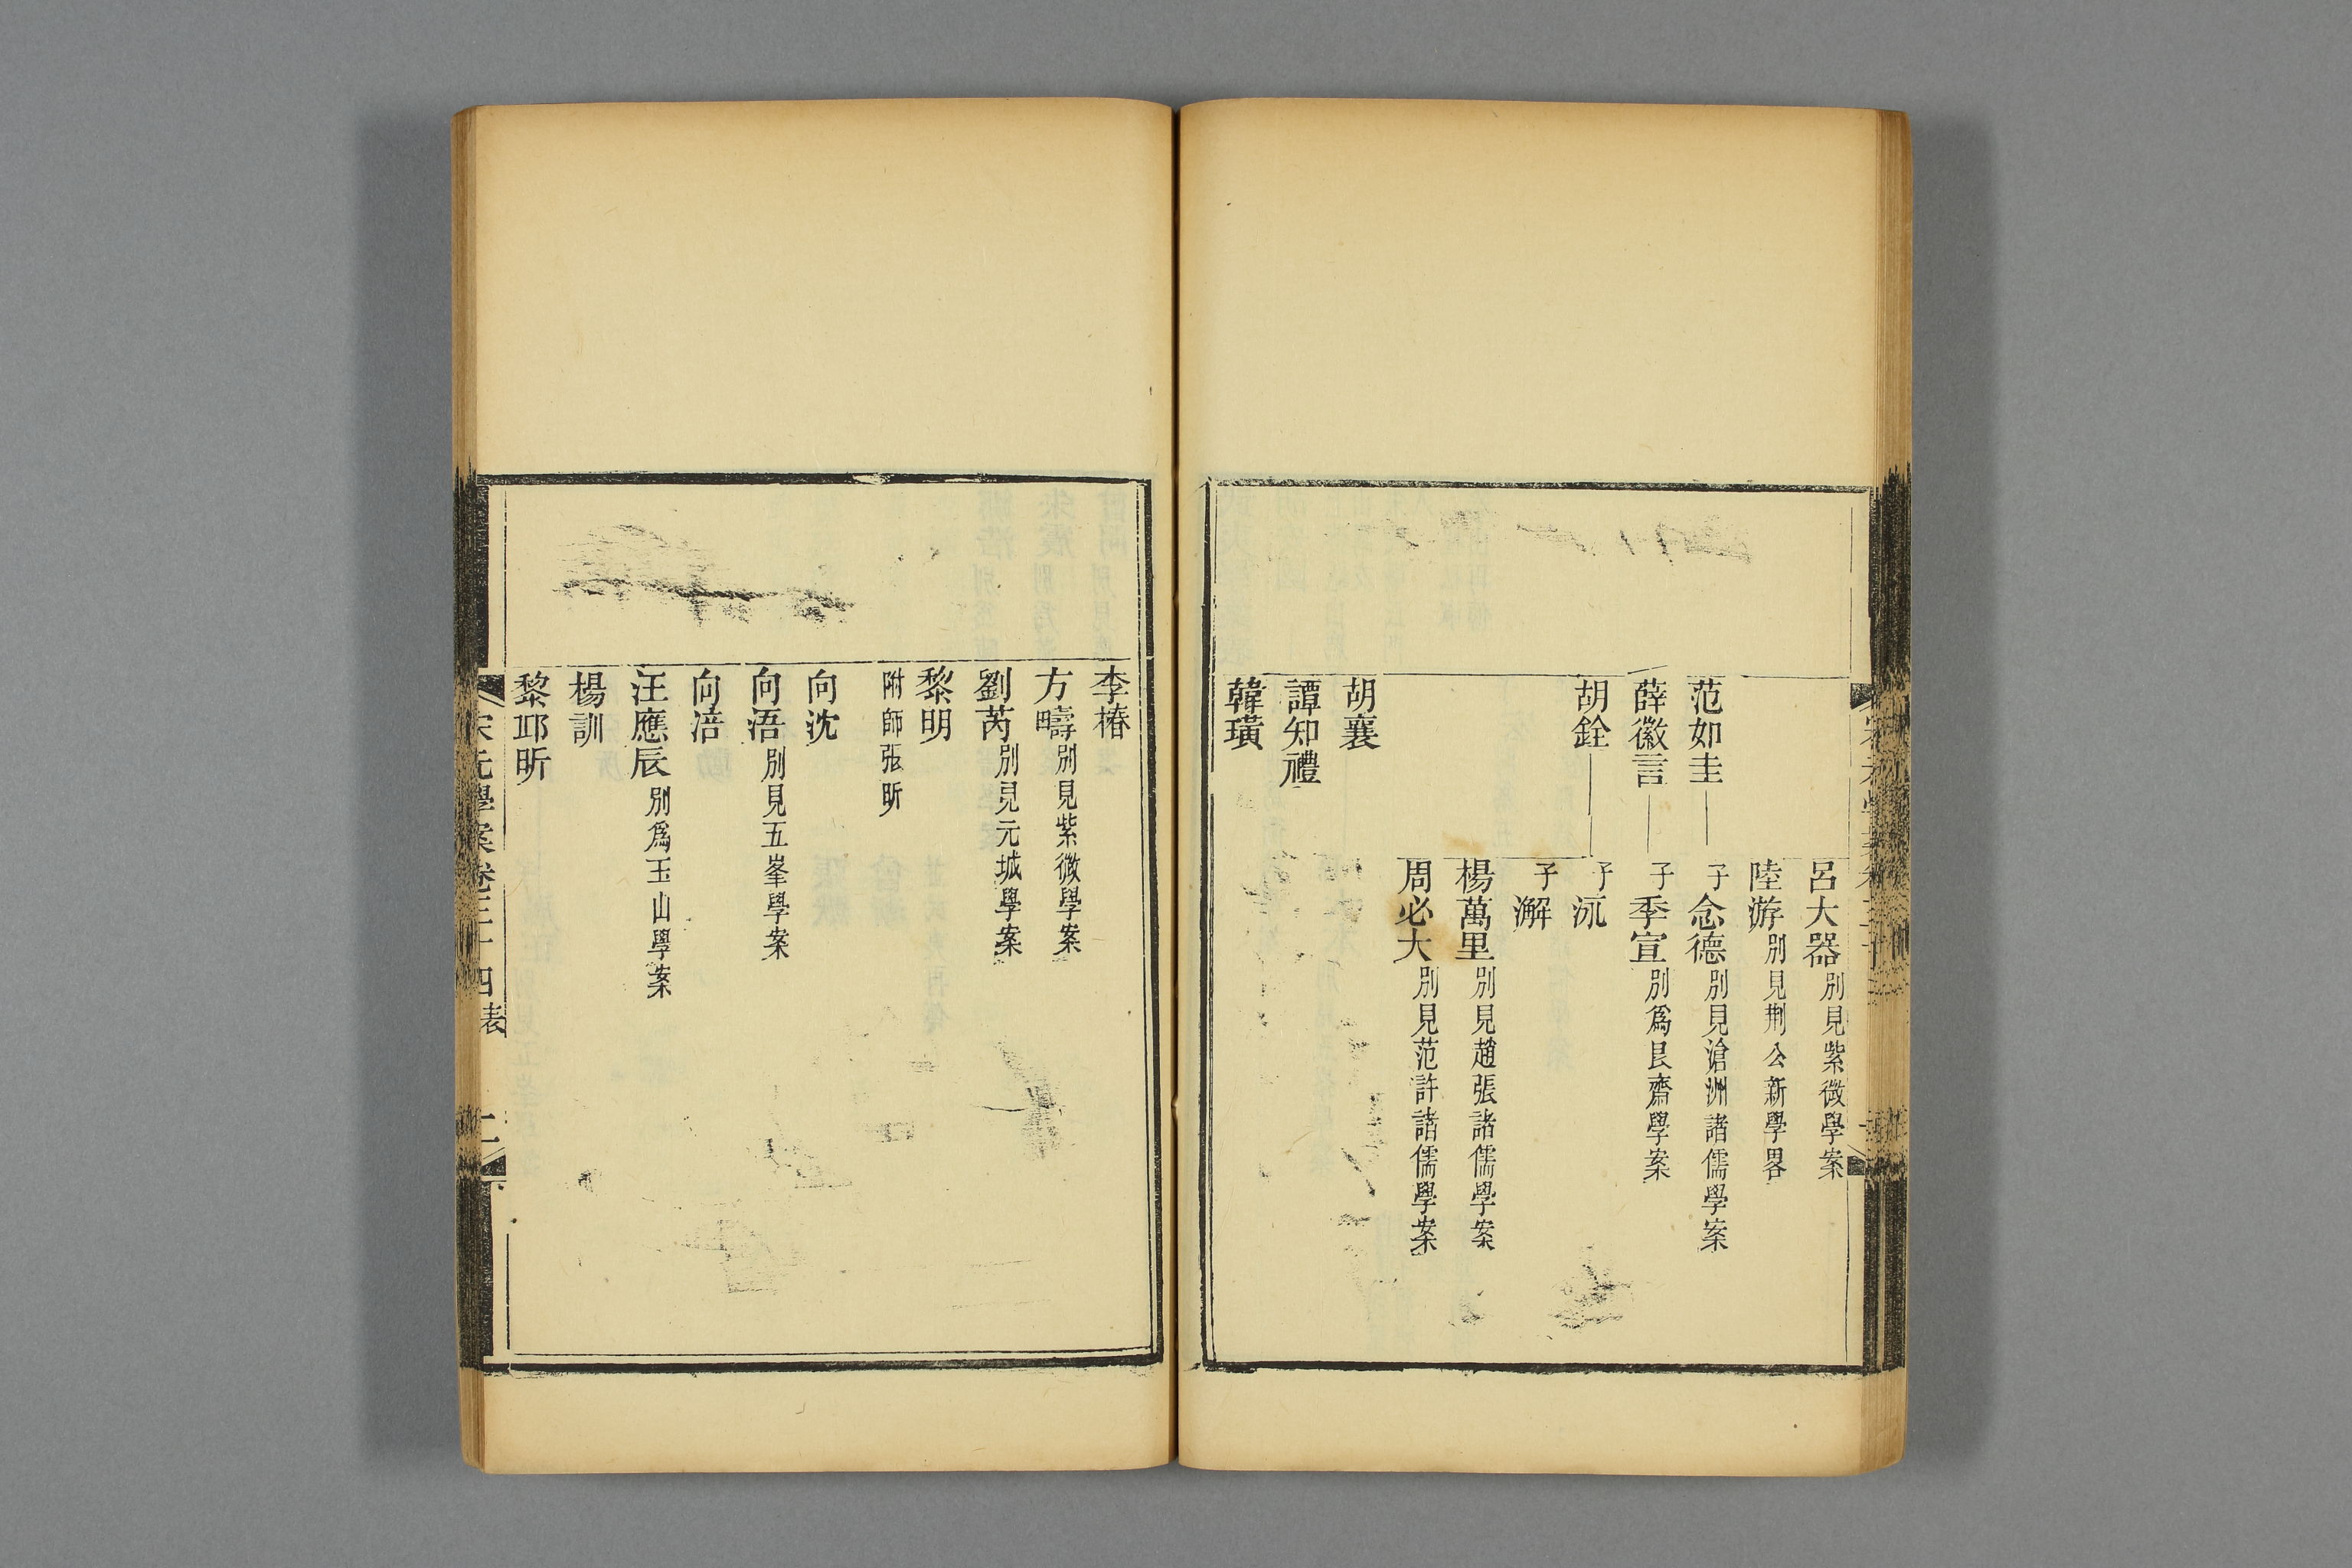 呂大器別見紫微學案
陸游別見荆公新學畧
范如圭 子念德別見滄洲諸儒學案
薛徽言 子季宣別爲艮齋學案
胡銓 子泳
子澥
楊萬里別見趙張諸儒學案
周必大別見范許諸儒學案
胡襄
譚知禮
韓璜
李椿
方疇別見紫微學案
劉芮別見元城學案
黎明
附師張昕
向沈
向浯別見五峯學案
向涪
汪應辰別爲玉山學案
楊訓
黎邛昕
宋元學案卷三十四表